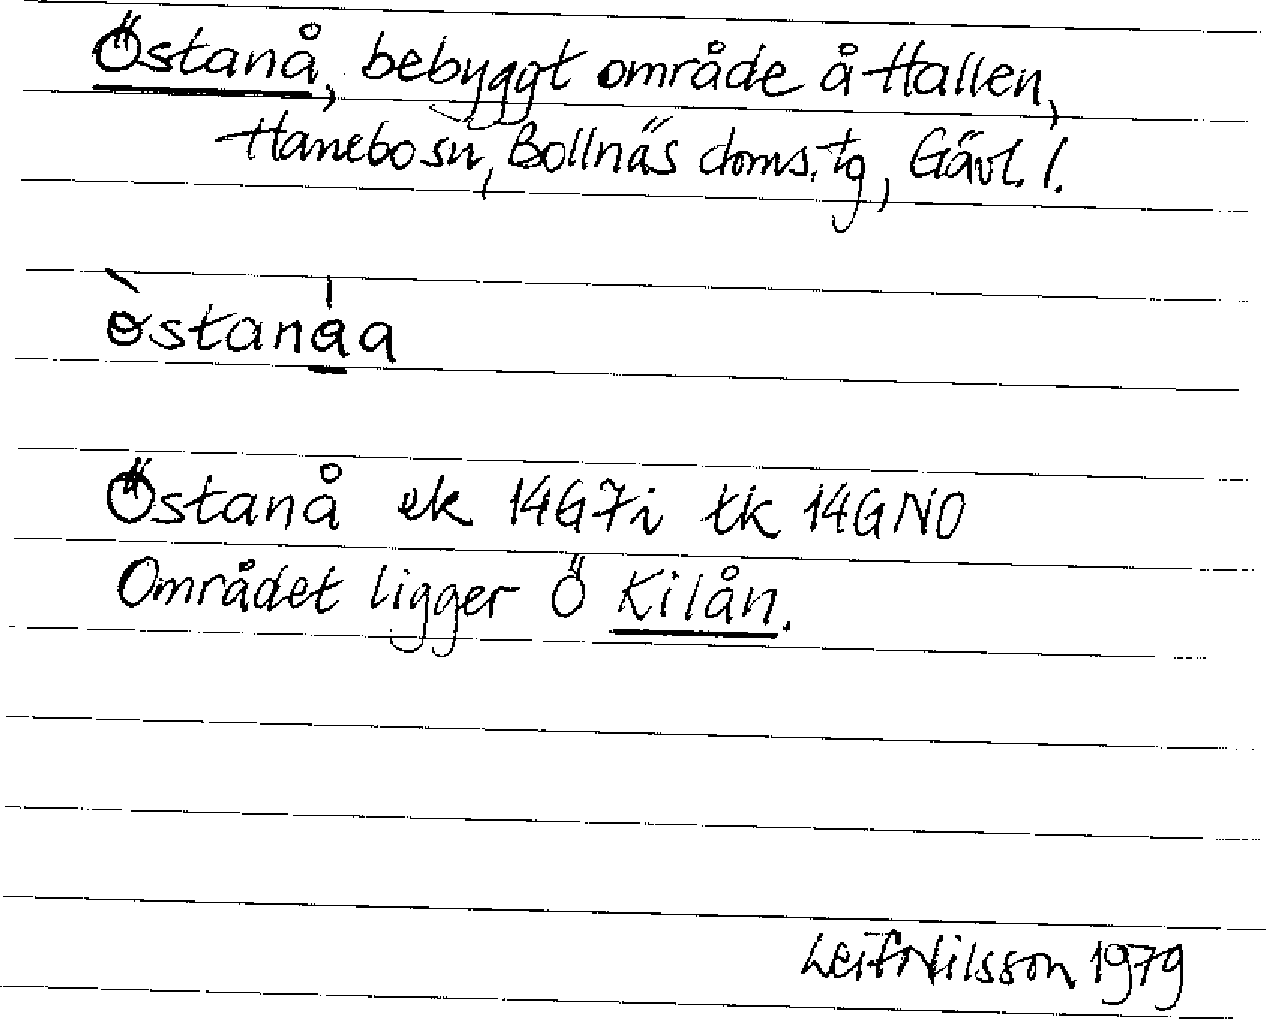 Östanå, bebyggt område å Hallen,
Hanebo sn, Bollnäs doms. tg, Gävl. l.
östanåa
Östanå ek 14G7i tk 14GNO
Området ligger Ö Kilån.
Leif Nilsson 1979